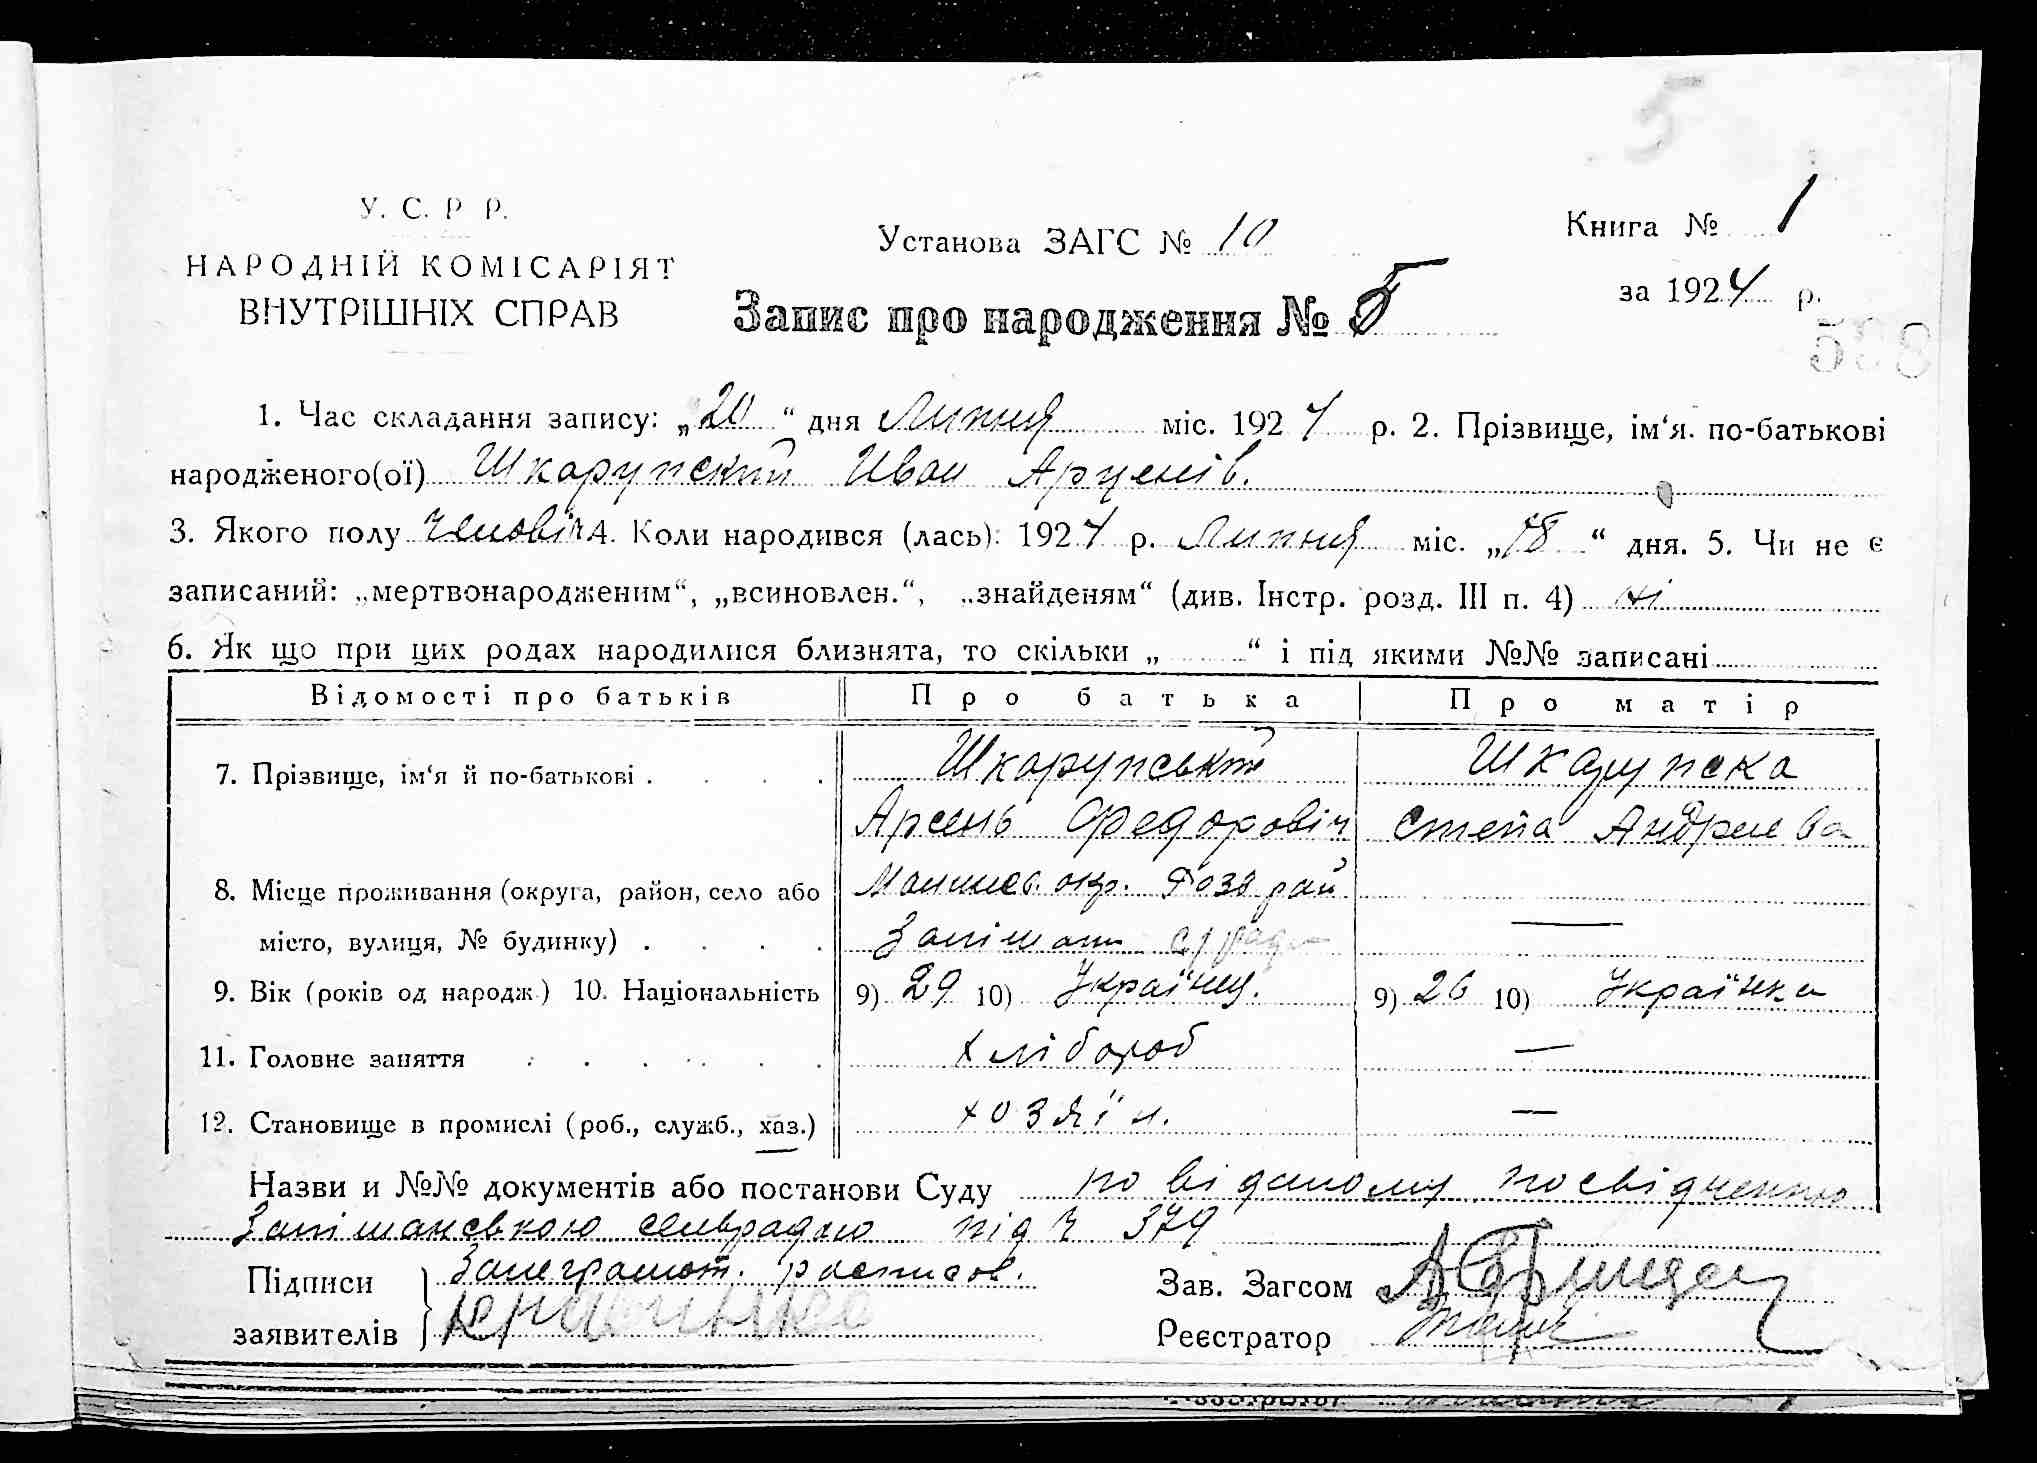 5
У. С. Р Р.
НАРОДНІЙ КОМІСАРІЯТ
ВНУТРІШНІХ СПРАВ
Установа ЗАГС № 10
Книга № 1
за 1924 р.
Запис про народження № 5
1. Час складання запису: „20“ дня Липня міс. 1924 р. 2. Прізвище, ім‘я. по-батькові
народженого(ої) Шкарупский Иван Арценів.
3. Якого полу чоловіч 4. Коли народився (лась): 1924 р. Липня міс. „18“ дня. 5. Чи не є
записаний: „мертвонародженим“, „всиновлен.“, „знайденям“ (див. Інстр. розд. III п. 4) ні
6. Як що при цих родах народилися близнята, то скільки „ “ і під якими №№ записані
Відомості про батьків Про батька Про матір
7. Прізвище, ім‘я й по-батькові . . . . Шкарупський Шкарупска
Арсень Федоровіч Степа Андреева
8. Місце проживання (округа, район, село або окр. Розв рай
місто, вулиця, № будинку) . . . . —
9. Вік (років од народж.) 10. Національність 9) 29 10) Українц. 9) 26 10) Українка
11. Головне заняття . . . . . . хлібороб —
12. Становище в промислі (роб., служб., хаз.) хозяїн. —
Назви и №№ документів або постанови Суду по виданому посвідченню
Запішанською сельрадою під Ч 379
Підписи
заявителів
Занеграмот. расписов.
Зав. Загсом
Реєстратор